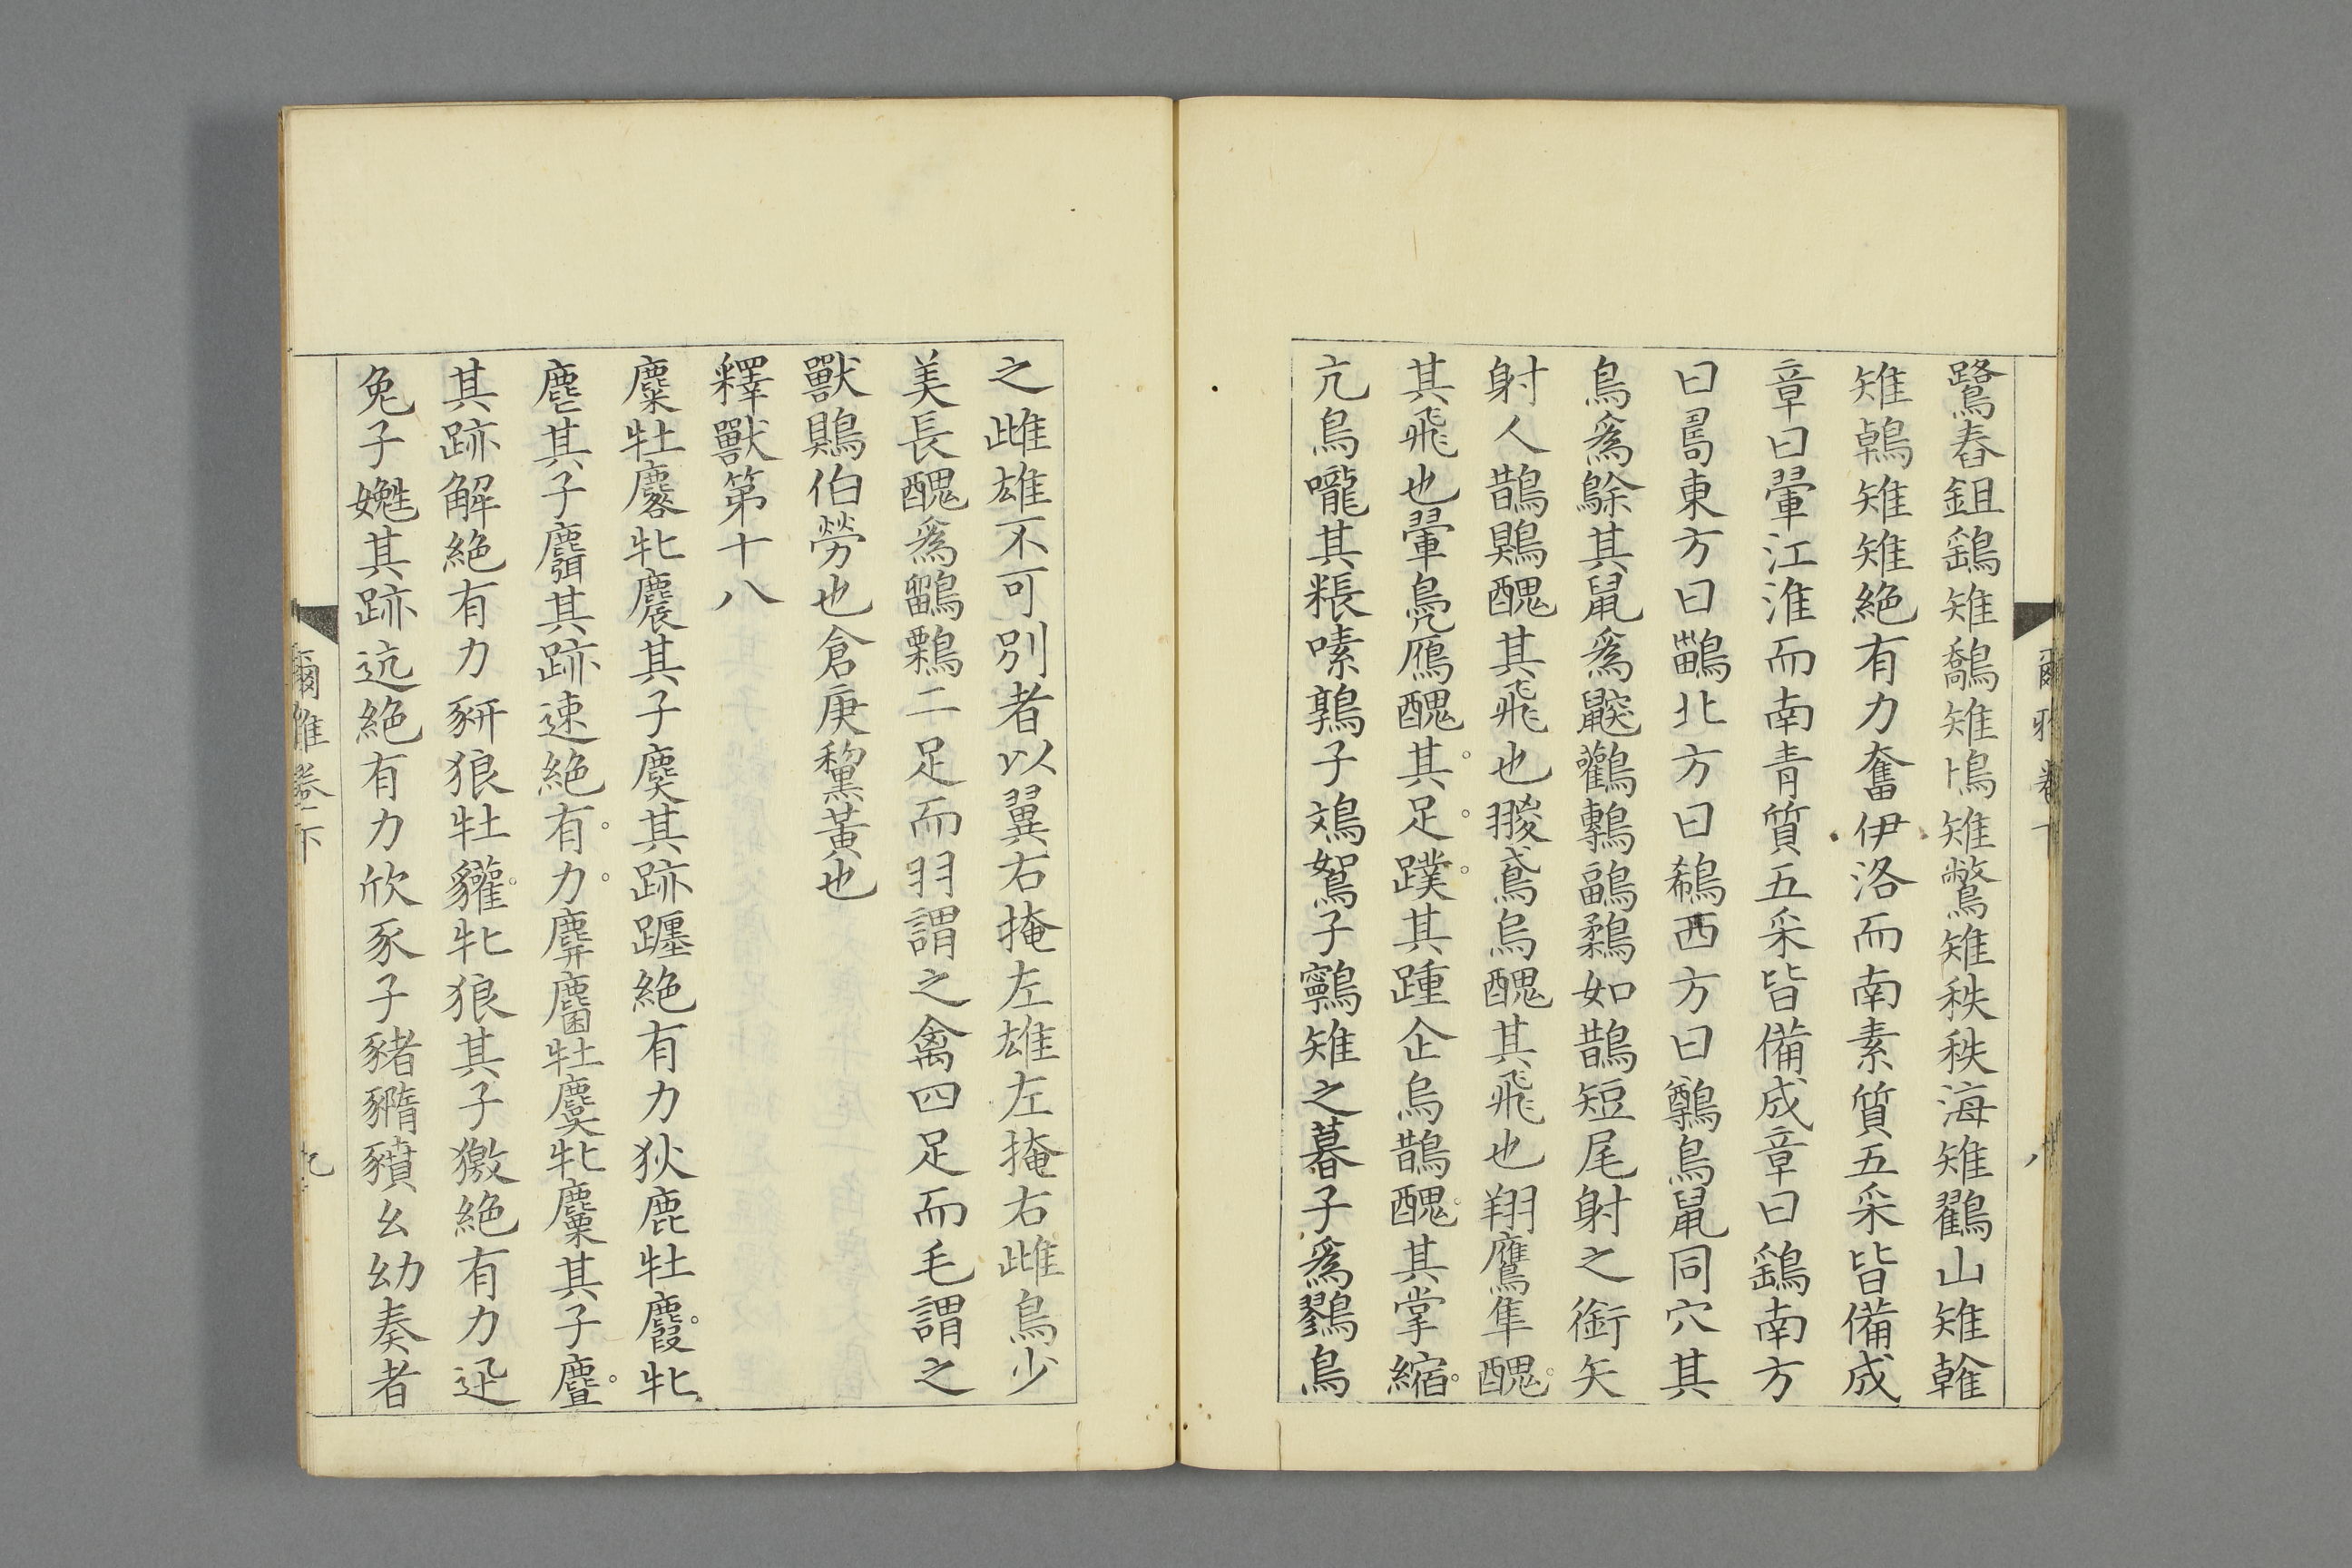 鷺舂鉏鷂雉鷮雉鳪雉鷩雉秩秩海雉鸐山雉雗
雉鵫雉雉絶有力奮伊洛而南素質五采皆備成
章曰翬江淮而南青質五采皆備成章曰鷂南方
曰𢏚東方曰鶅北方曰鵗西方曰鷷鳥鼠同穴其
鳥爲鵌其鼠爲鼵鸛鷒鶝鶔如鵲短尾射之銜矢
射人鵲鶪醜其飛也翪鳶烏醜其飛也翔鷹隼醜
其飛也翬鳧鴈醜其足蹼其踵企烏鵲醜其掌縮
亢鳥嚨其粻嗉鶉子鳼鴽子鸋雉之暮子爲鷚鳥
爾雅卷下
八
之雌雄不可別者以翼右掩左雄左掩右雌鳥少
美長醜爲鶹鷅二足而羽謂之禽四足而毛謂之
獸鶪伯勞也倉庚黧黃也
釋獸第十八
麋牡麔牝麎其子䴠其跡躔絶有力狄鹿牡麚牝
麀其子麛其跡速絶有力麉麕牡麌牝麜其子麆
其跡解絶有力豜狼牡貛牝狼其子獥絶有力迅
兔子嬎其跡迒絶有力欣豕子豬䝐豶幺幼奏者
爾雅卷下
九